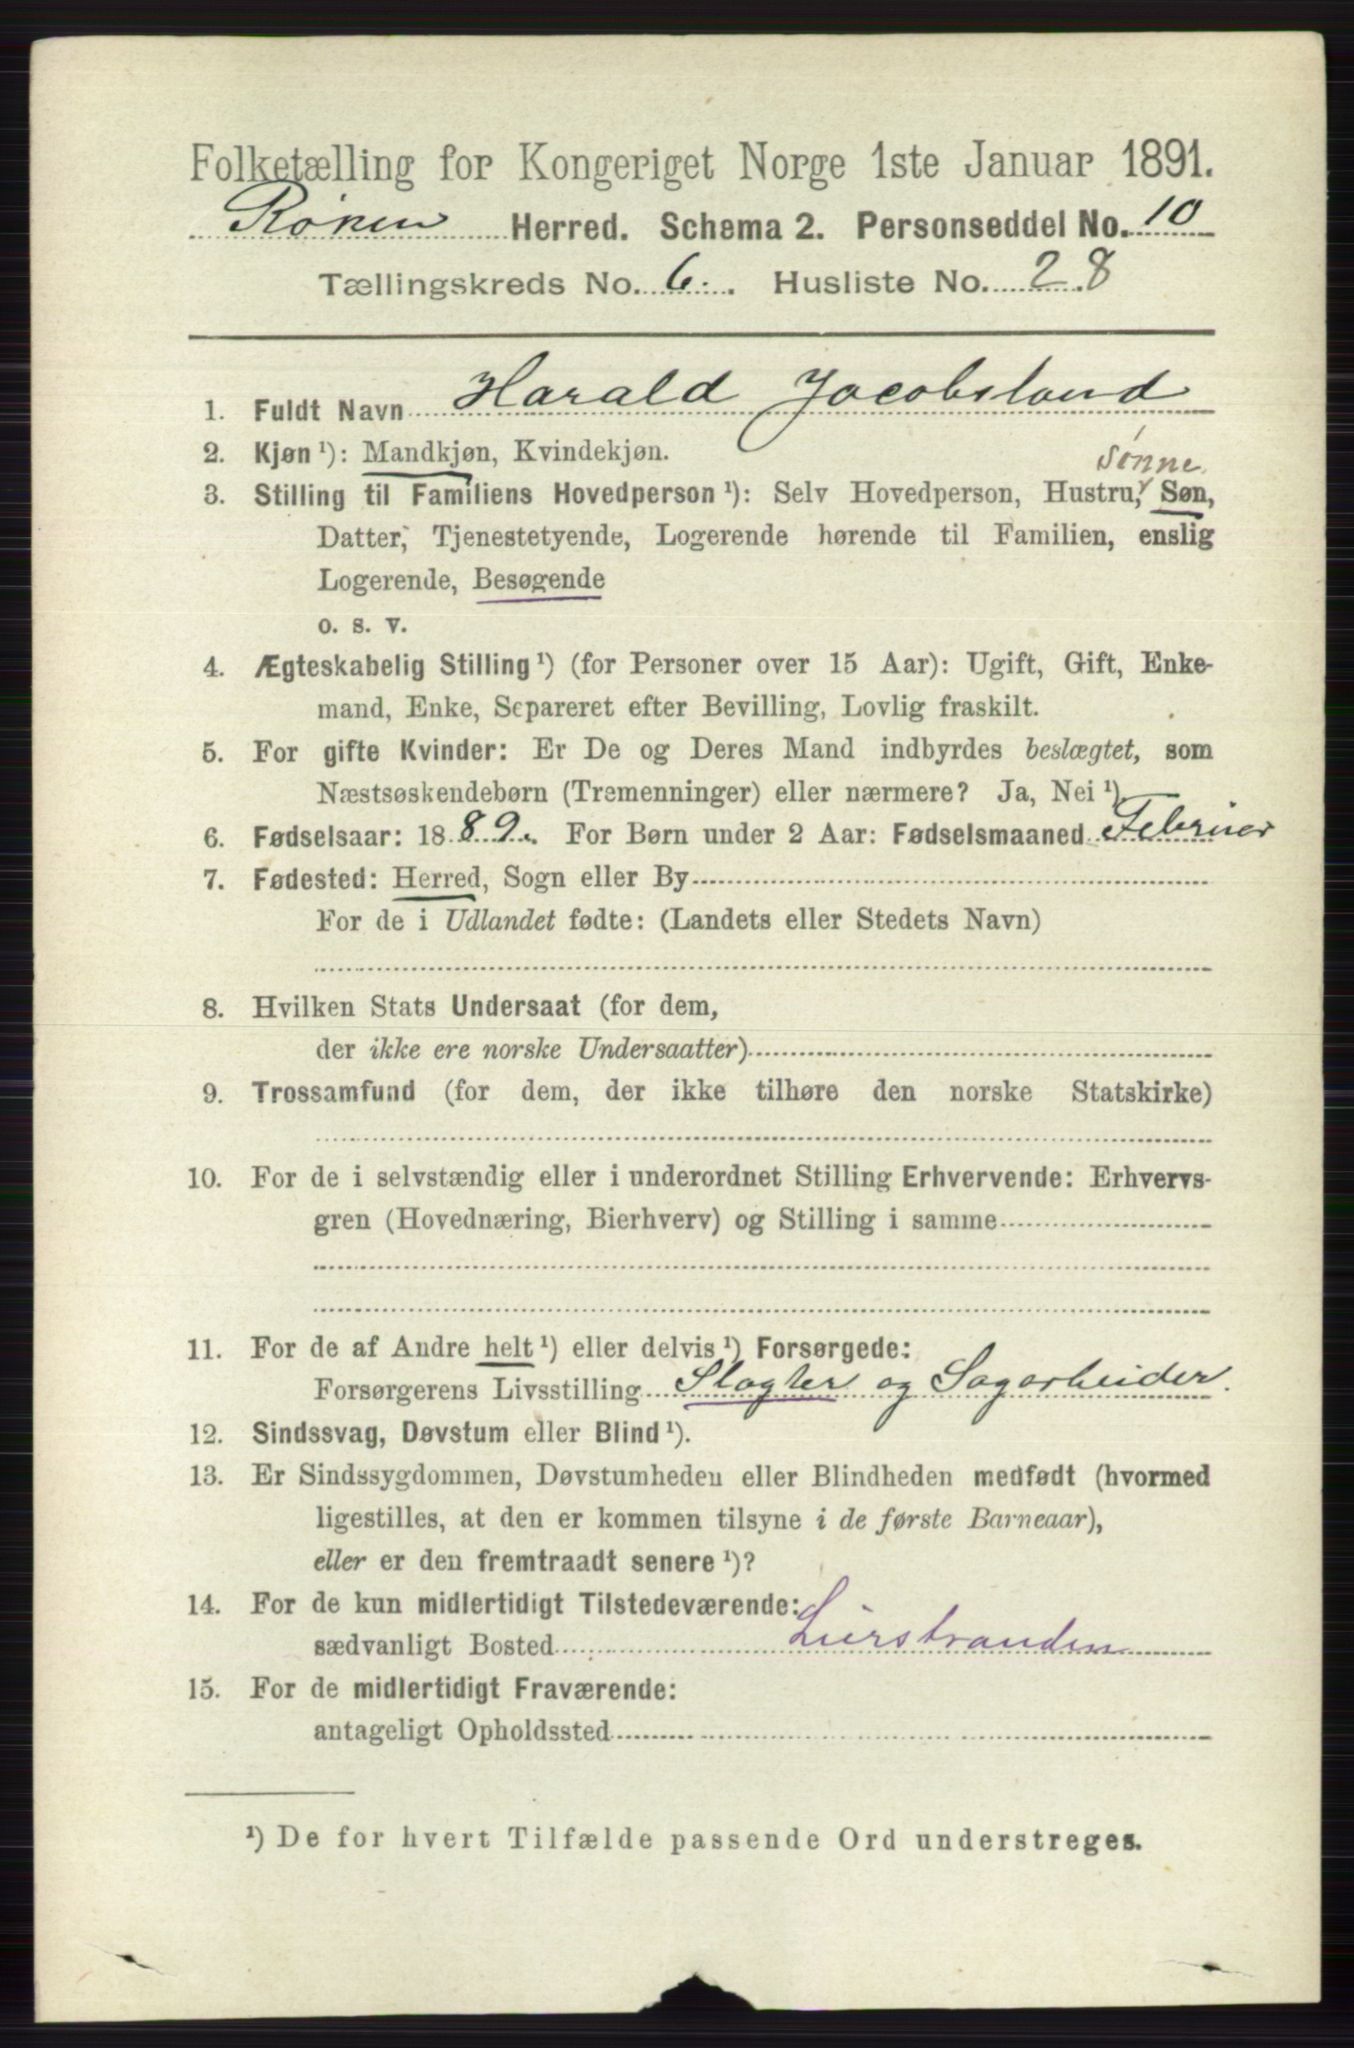 Folketælling for Kongeriget Norge 1ste Januar 1891.
Røken Herred. Schema 2. Personseddel No. 10
Tællingskreds No. 6. Husliste No. 28
1. Fuldt Navn Harald Jacobsland
2. Kjøn ¹): Mandkjøn, Kvindekjøn.
sønne
3. Stilling til Familiens Hovedperson ¹): Selv Hovedperson, Hustru, Søn,
Datter, Tjenestetyende, Logerende hørende til Familien, enslig
Logerende, Besøgende
o. s. v.
4. Ægteskabelig Stilling ¹) (for Personer over 15 Aar): Ugift, Gift, Enke-
mand, Enke, Separeret efter Bevilling, Lovlig fraskilt.
5. For gifte Kvinder: Er De og Deres Mand indbyrdes beslægtet, som
Næstsøskendebørn (Tremenninger) eller nærmere? Ja, Nei ¹)
6. Fødselsaar: 1889. For Børn under 2 Aar: Fødselsmaaned Februar
7. Fødested: Herred, Sogn eller By
For de i Udlandet fødte: (Landets eller Stedets Navn)
8. Hvilken Stats Undersaat (for dem,
der ikke ere norske Undersaatter)
9. Trossamfund (for dem, der ikke tilhøre den norske Statskirke)
10. For de i selvstændig eller i underordnet Stilling Erhvervende: Erhvervs-
gren (Hovednæring, Bierhverv) og Stilling i samme
11. For de af Andre helt ¹) eller delvis ¹) Forsørgede:
Forsørgerens Livsstilling Slagter og Sagarbeider.
12. Sindssvag, Døvstum eller Blind ¹).
13. Er Sindssygdommen, Døvstumheden eller Blindheden medfødt (hvormed
ligestilles, at den er kommen tilsyne i de første Barneaar),
eller er den fremtraadt senere ¹)?
14. For de kun midlertidigt Tilstedeværende:
sædvanligt Bosted Lierstranden
15. For de midlertidigt Fraværende:
antageligt Opholdssted
¹) De for hvert Tilfælde passende Ord understreges.